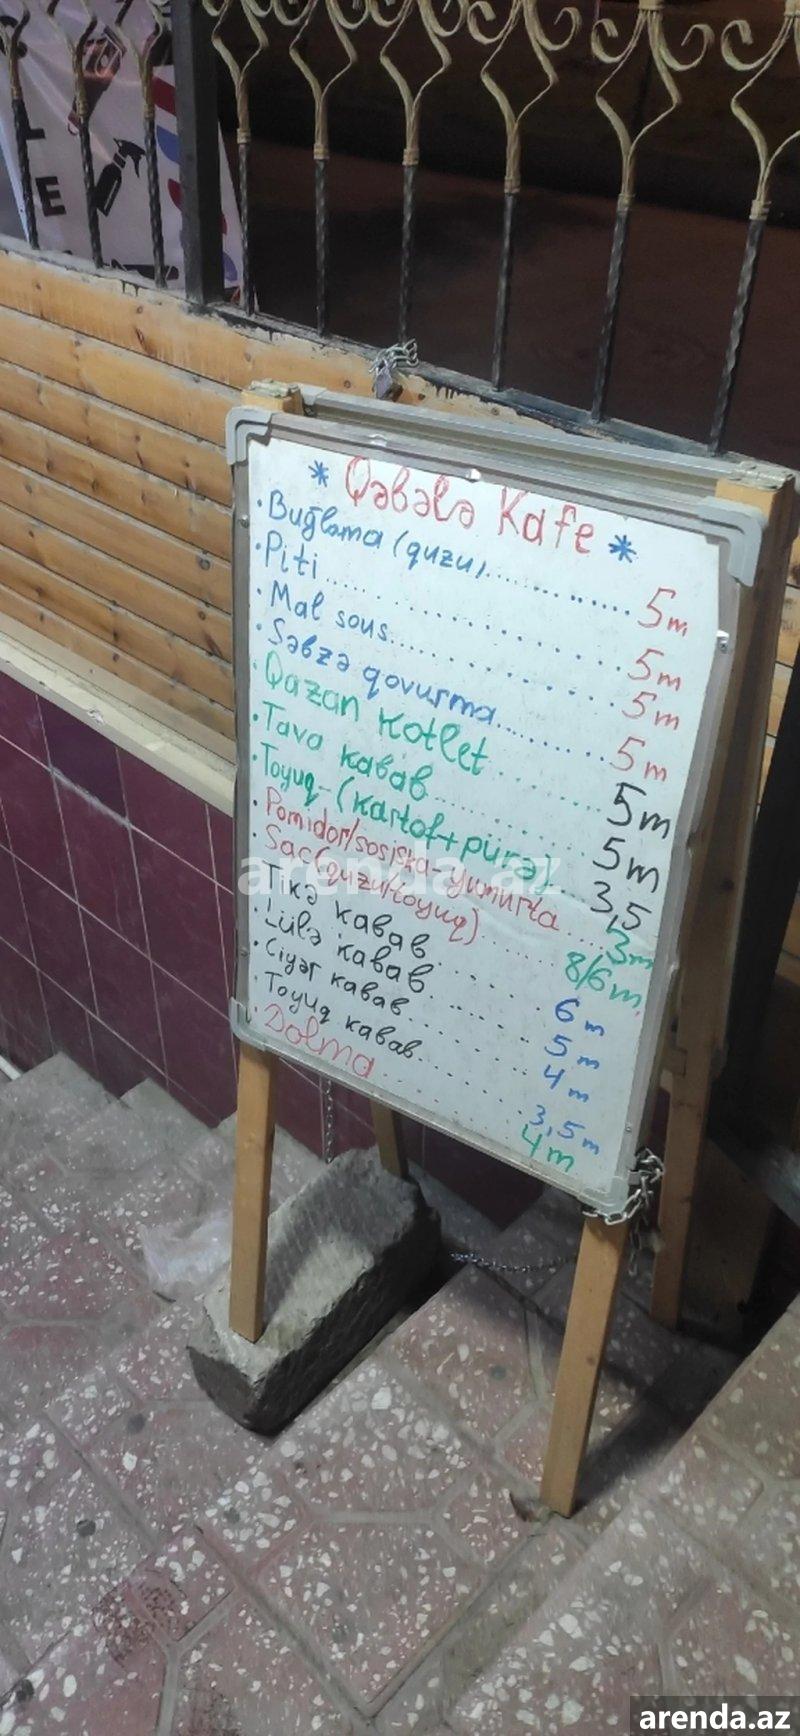 L
E
* Qəbələ Kafe *
• Buğlama (quzu)............... 5m
• Piti............... 5m
• Mal sous............... 5m
• Səbzə qovurma............ 5m
• Qazan kotlet............ 5m
• Tava kabab............ 5m
• Toyuq-(kartof+pürə)...... 3,5
• Pomidor/sosiska-yumurta.... 3m
• Sac(quzu/toyuq)........ 8/6m
• Tikə kabab............ 6m
• Lülə kabab............ 5m
• Ciyər kabab............ 4m
• Toyuq kabab............ 3,5m
• Dolma............ 4m
arenda.az
arenda.az